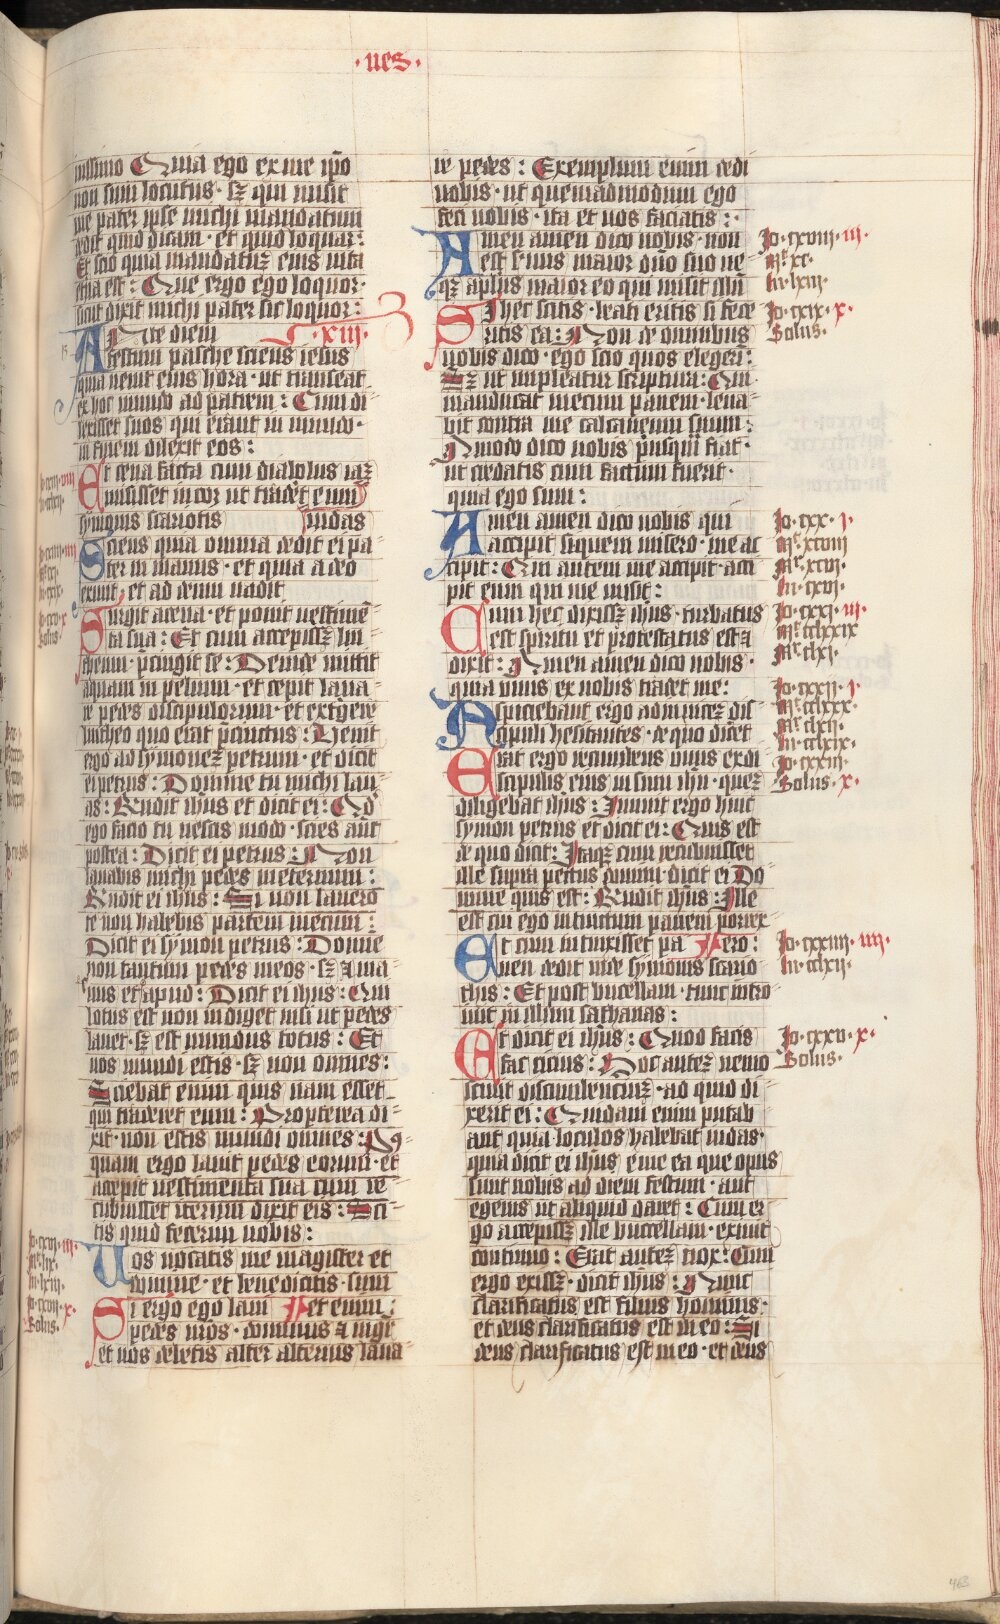 ·nes·
nissimo Quia ego ex me ip̄o
non sum locutus· sꝫ qui misit
me pater ipse michi mandatum
dedit quid dicam· et quid loquar:
Et scio quia mandatuꝫ eius uita
et̄na est: Que ergo ego loquor·
sicut dixit michi pater sic loquor:
Ante diem ·xiii·
festum pasche sciens iesus
quia uenit eius hora· ut transeat
ex hoc mundo ad patrem: Cum di
lexisset suos qui erant in mundo·
in finem dilexit eos:
Et cena facta cum diabolus iaꝫ
misisset in cor ut trad̄et eum
symonis scariotis iudas
Sciens quia omnia dedit ei pa
ter in manus· et quia a deo
exiuit, et ad deum uadit
Surgit a cena· et ponit uestimē
ta sua: Et cum accepissꝫ lin
theum· p̄cingit se: Deinde mittit
aquam in peluim· et cepit laua
re pedes discipulorum· et ext̄gere
lintheo quo erat p̄cinctus: Uenit
ergo ad symoneꝫ petrum· et dicit
ei petrus: Domine tu michi lau
as: R̄ndit ih̄us et dicit ei: Qd̄
ego facio tu nescis modo· scies aūt
postea: Dicit ei petrus: Non
lauabis michi pedes in eternum:
R̄ndit ei ih̄us: Si non lauero
te non habebis partem mecum:
Dicit ei symon petrus: Domne
non tantum pedes meos· sꝫ ⁊ ma
nus et capud: Dicit ei ih̄us: Qui
lotus est non indiget nisi ut pedes
lauet· sꝫ est mundus totus: Et
uos mundi estis· sꝫ non omnes:
Sciebat enim quis nam esset
qui traderet eum: Propterea di
xit· non estis mundi omnes: Pꝰ
quam ergo lauit pedes eorum· et
accepit uestimenta sua cum re
cubuisset iterum dixit eis: Sci
tis quid fecerim uobis:
Uos uocatis me magister et
domine· et bene dicitis· sum
Si ergo ego laui et enim:
pedes ūros· dominus ⁊ mgr̄
et uos debetis alter alterius laua
re pedes: Exemplum enim dedi
uobis· ut quemadmodum ego
feci uobis· ita et uos faciatis:·
Amen amen dico uobis· non
est s̄uus maior dn̄o suo ne
qꝫ apl̄us maior eo qui misit illū
Si hec scitis· beati eritis si fece
ritis ea: Non de omnibus
uobis dico· ego scio quos elegeri:
Sꝫ ut impleatur scriptura: Qui
manducat mecum panem· leua
bit contra me calcaneum suum:
Amodo dico uobis p̄usqȳ fiat·
ut credatis cum factum fuerit·
quia ego sum:
Amen amen dico uobis qui
accipit si quem misero· me ac
cipit: Qui autem me accipit· acci
pit eum qui me misit:
Cum hec dixissꝫ ih̄us· turbatus
est spiritu et protestatus est ⁊
dixit: Amen amen dico uobis·
quia unus ex uobis trad̄et me:
Aspiciebant ergo ad inuiceꝫ dis
cipuli hesitantes· de quo dic̄et
Erat ergo recumbens unus ex di
scipulis eius in sinu ih̄u· queꝫ
diligebat ih̄us: Innuit ergo huic
symon petrus et dicit ei: Quis est
de quo dicit: Itaqꝫ cum recubuisset
ille supra pectus domini· dicit ei Do
mine quis est: R̄ndit ih̄us: Ille
est cui ego intinctum panem porrex
Et cum intinxisset pa ero:
nem dedit iude symonis scario
this: Et post buccellam· tunc intro
iuit in illum sathanas:
Et dicit ei ih̄us: Quod facis
fac cicius: Hoc auteꝫ nemo
sciuit discumbenciuꝫ· ad quid di
xerit ei: Quidam enim putab
ant quia loculos habebat iudas·
quia dicit ei ih̄us eme ea que opus
sunt nobis ad diem festum· aut
egenis ut aliquid daret: Cum er
go accepissꝫ ille buccellam· exiuit
continuo: Erat auteꝫ nox: Cum
ergo exissꝫ· dicit ih̄us: Nunc
clarificatus est filius hominis·
et deus clarificatus est in eo: Si
deus clarificatus est in eo· et deus
Jo·cxviii·iii·
Mr̄ xc·
lu·lviii·
Jo·cxix·x·
Solus·
Jo·cxx·i·
Mr̄ xcviii
Mr̄ xcvi·
lu·cxvi·
Jo·cxxi·iii·
Mr̄ cclxxix
Mr̄ clxi·
Jo·cxxii·i·
Mr̄ cclxxx·
Mr̄ clxii·
lu·cclxix·
Jo·cxxiii·
Solus·x·
Jo·cxxiiii·iiii·
lu·cclxii·
Jo·cxxv·x·
Solus·
Jo·cxvi·iii·
lu·lxiii·
Jo·cxvii·x·
Solus·
463